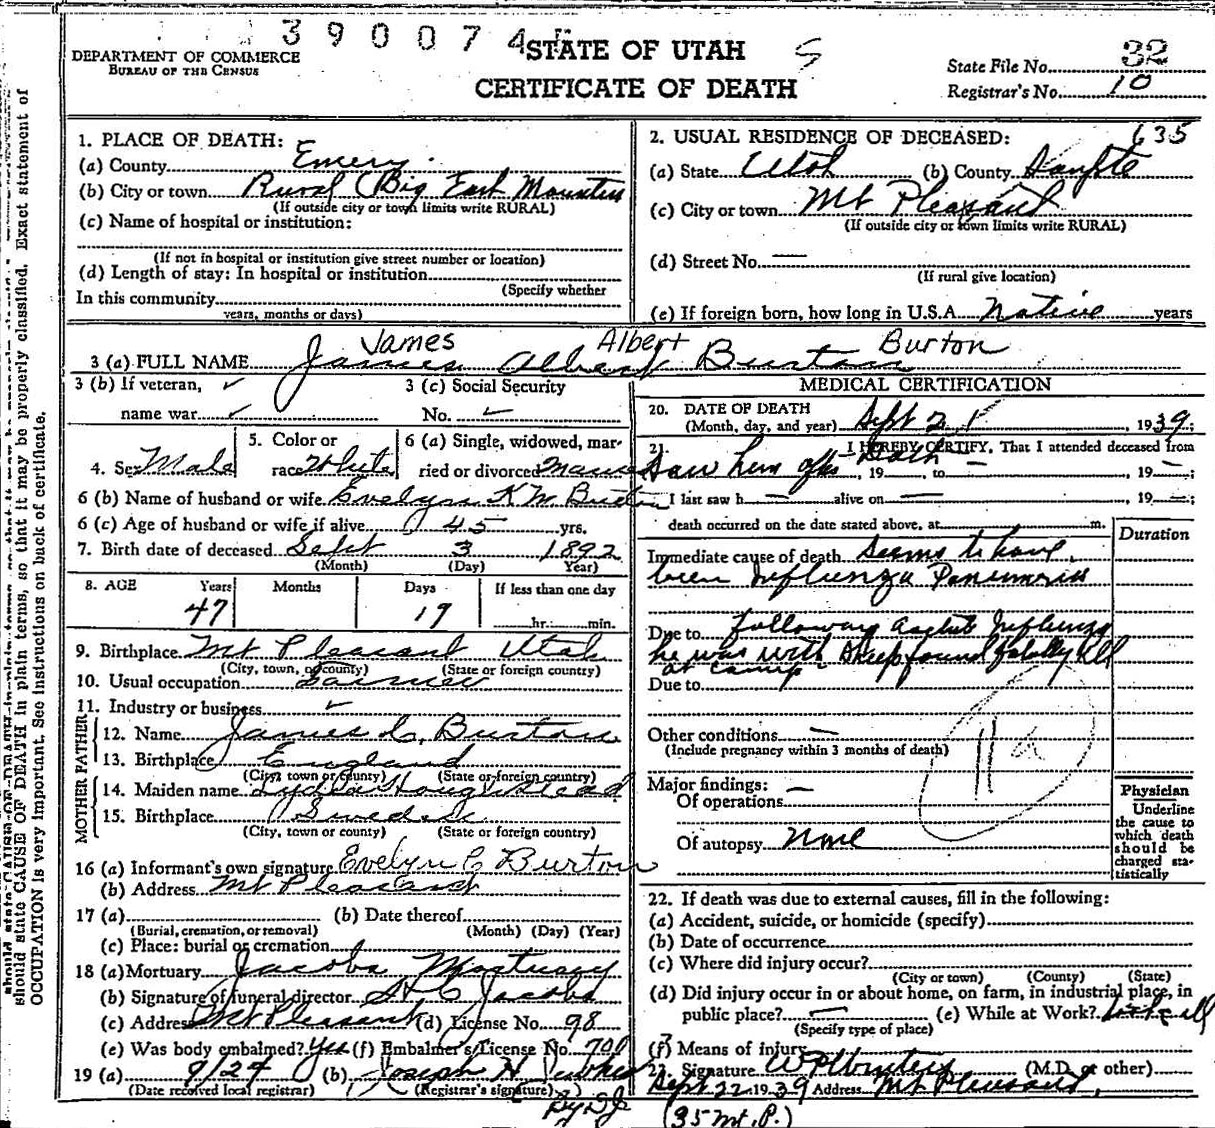 390074
STATE OF UTAH
CERTIFICATE OF DEATH
DEPARTMENT OF COMMERCE
BUREAU OF THE CENSUS
State File No. 32
Registrar's No. 10
635
1. PLACE OF DEATH:
(a) County Emery
(b) City or town Rural (Big East Mountain
(If outside city or town limits write RURAL)
(c) Name of hospital or institution:
(If not in hospital or institution give street number or location)
(d) Length of stay: In hospital or institution
(Specify whether
In this community
years, months or days)
2. USUAL RESIDENCE OF DECEASED:
(a) State Utah (b) County Sanpete
(c) City or town Mt Pleasant
(If outside city or town limits write RURAL)
(d) Street No. —
(If rural give location)
(e) If foreign born, how long in U.S.A. Native years
James Albert Burton
3 (a) FULL NAME James Albert Burton
3 (b) If veteran, ✓
name war ✓
3 (c) Social Security
No. ✓
4. Sex Male
5. Color or
race White
6 (a) Single, widowed, mar-
ried or divorced
6 (b) Name of husband or wife Evelyn K M Burton
6 (c) Age of husband or wife if alive 45 yrs.
7. Birth date of deceased Sept 3 1892
(Month) (Day) Year)
8. AGE Years Months Days If less than one day
47 19 hr. min.
9. Birthplace Mt Pleasant Utah
(City, town, or county) (State or foreign country)
10. Usual occupation Farmer
11. Industry or business ✓
FATHER
12. Name James C. Burton
13. Birthplace England
(City, town or county) (State or foreign country)
MOTHER
14. Maiden name Lydia
15. Birthplace
(City, town or county) (State or foreign country)
16 (a) Informant's own signature Evelyn C Burton
(b) Address Mt Pleasant
17 (a) (b) Date thereof
(Burial, cremation, or removal) (Month) (Day) (Year)
(c) Place: burial or cremation
18 (a) Mortuary Jacobs Mortuary
(b) Signature of funeral director H C Jacobs
(c) Address Mt Pleasant (d) License No. 98
(e) Was body embalmed? Yes (f) Embalmer's License No. 700
19 (a) 9/24 (b) Joseph H
(Date received local registrar) (Registrar's signature)
MEDICAL CERTIFICATION
20. DATE OF DEATH
(Month, day, and year) Sept 21, 1939;
21. I HEREBY CERTIFY, That I attended deceased from
Saw him after Death —, 19 , to —, 19—;
I last saw h — alive on —, 19—;
death occurred on the date stated above, at m.
Duration
Immediate cause of death Seems to have
been Influenza Pneumonia
Due to following acute Influenza
he was with sheep found fatally ill
at camp
Due to
Other conditions —
(Include pregnancy within 3 months of death)
Major findings: —
Of operations
Of autopsy None
11a
Physician
Underline
the cause to
which death
should be
charged sta-
tistically
22. If death was due to external causes, fill in the following:
(a) Accident, suicide, or homicide (specify)
(b) Date of occurrence
(c) Where did injury occur?
(City or town) (County) (State)
(d) Did injury occur in or about home, on farm, in industrial place, in
public place? — (e) While at Work?
(Specify type of place)
(f) Means of injury
23. Signature (M.D. or other)
Sept 22 1939 Address Mt Pleasant,
(35 Mt. P.)
should state CAUSE OF DEATH in plain terms, so that it may be properly classified. Exact statement of
OCCUPATION is very important. See instructions on back of certificate.